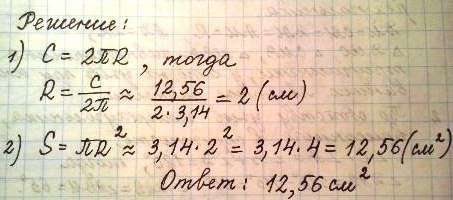 Решение:
1) C = 2πR, тогда
R = C/2π ≈ 12,56/2·3,14 = 2 (см)
2) S = πR² ≈ 3,14·2² = 3,14·4 = 12,56 (см²)
Ответ: 12,56 см²